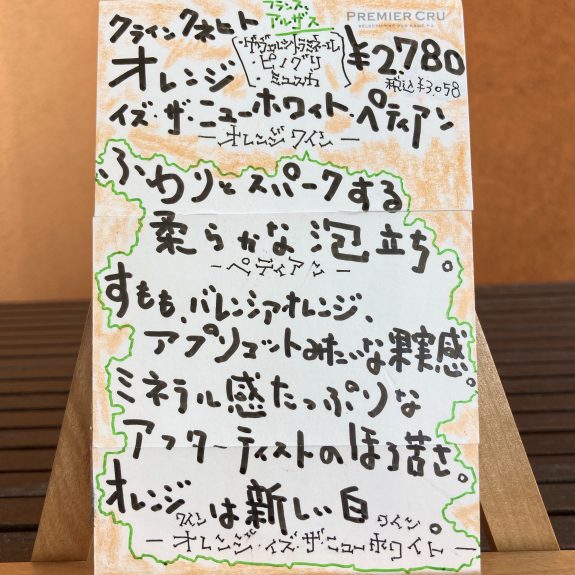 フランス、
アルザス
PREMIER CRU
クラインクネヒト
ゲヴェルツトラミネール
ピノグリ
ミュスカ
¥2.780
税込¥3.058
オレンジ
イズ・ザ・ニューホワイト・ペティアン
—オレンジワイン—
ふわりとスパークする
柔らかな泡立ち。
—ペティアン—
すもも、バレンシアオレンジ、
アプリコットみたいな果実感。
ミネラル感たっぷりな
アフターテイストのほろ苦さ。
オレンジワインは新しい白ワイン。
—オレンジ・イズ・ザニューホワイト—